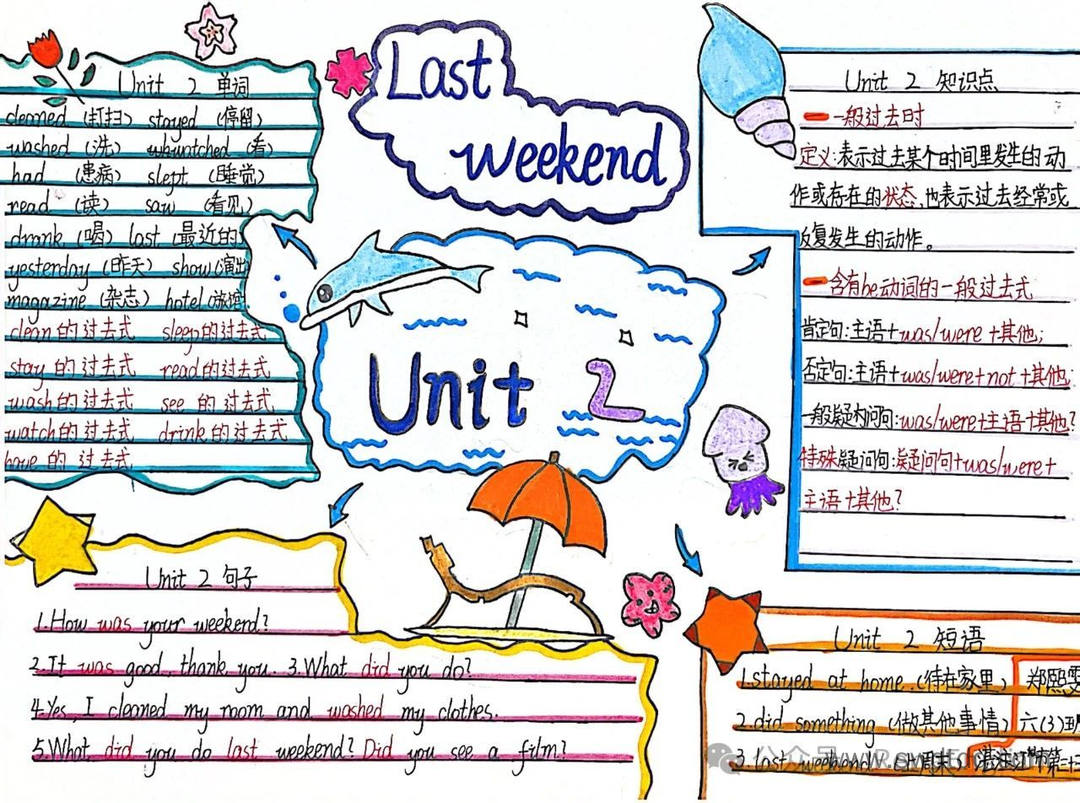 Last
weekend
Unit 2
Unit 2 单词
cleaned (打扫) stayed (停留)
washed (洗) (看)
had (患病) slept (睡觉)
read (读) saw (看见)
drank (喝) last (最近的
yesterday (昨天) show (演出
magazine (杂志) hotel (旅馆
clean 的过去式 sleep的过去式
stay 的过去式 read的过去式
wash的过去式 see 的过去式
watch的过去式 drink的过去式
have 的 过去式
Unit 2 知识点
一般过去时
定义:表示过去某个时间里发生的动
作或存在的状态,也表示过去经常或
反复发生的动作。
含有be动词的一般过去式
肯定句:主语+was/were+其他;
否定句:主语+was/were+not+其他;
一般疑问句:was/were+主语+其他?
特殊疑问句:疑问句+was/were+
主语+其他?
Unit 2 句子
1.How was your weekend?
2.It was good, thank you. 3.What did you do?
4.Yes, I cleaned my room and washed my clothes.
5.What did you do last weekend? Did you see a film?
Unit 2 短语
1.stayed at home (待在家里) 郑熙雯
2.did something (做其他事情) 六(3)班
3.last weekend (上周末)
公众号